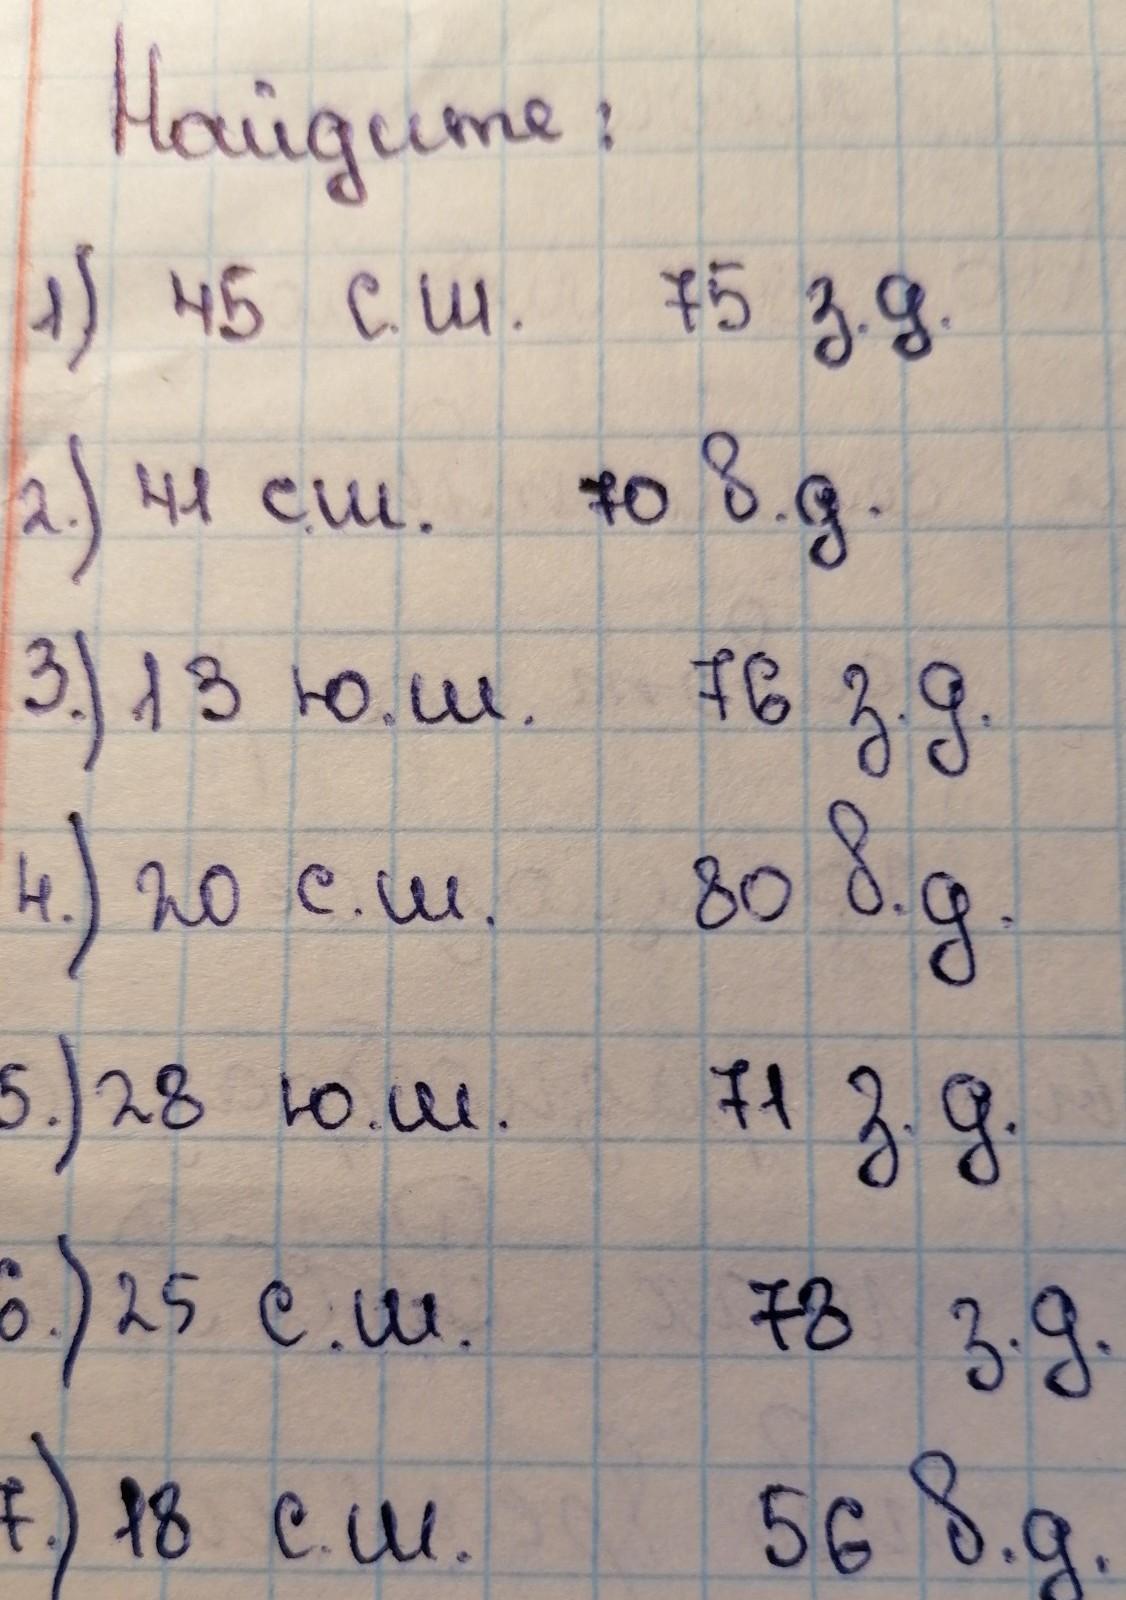 Найдите:
1.) 45 с.ш. 75 з.д.
2.) 41 с.ш. 70 в.д.
3.) 13 ю.ш. 76 з.д.
4.) 20 с.ш. 80 в.д.
5.) 28 ю.ш. 71 з.д.
6.) 25 с.ш. 78 з.д.
7.) 18 с.ш. 56 в.д.